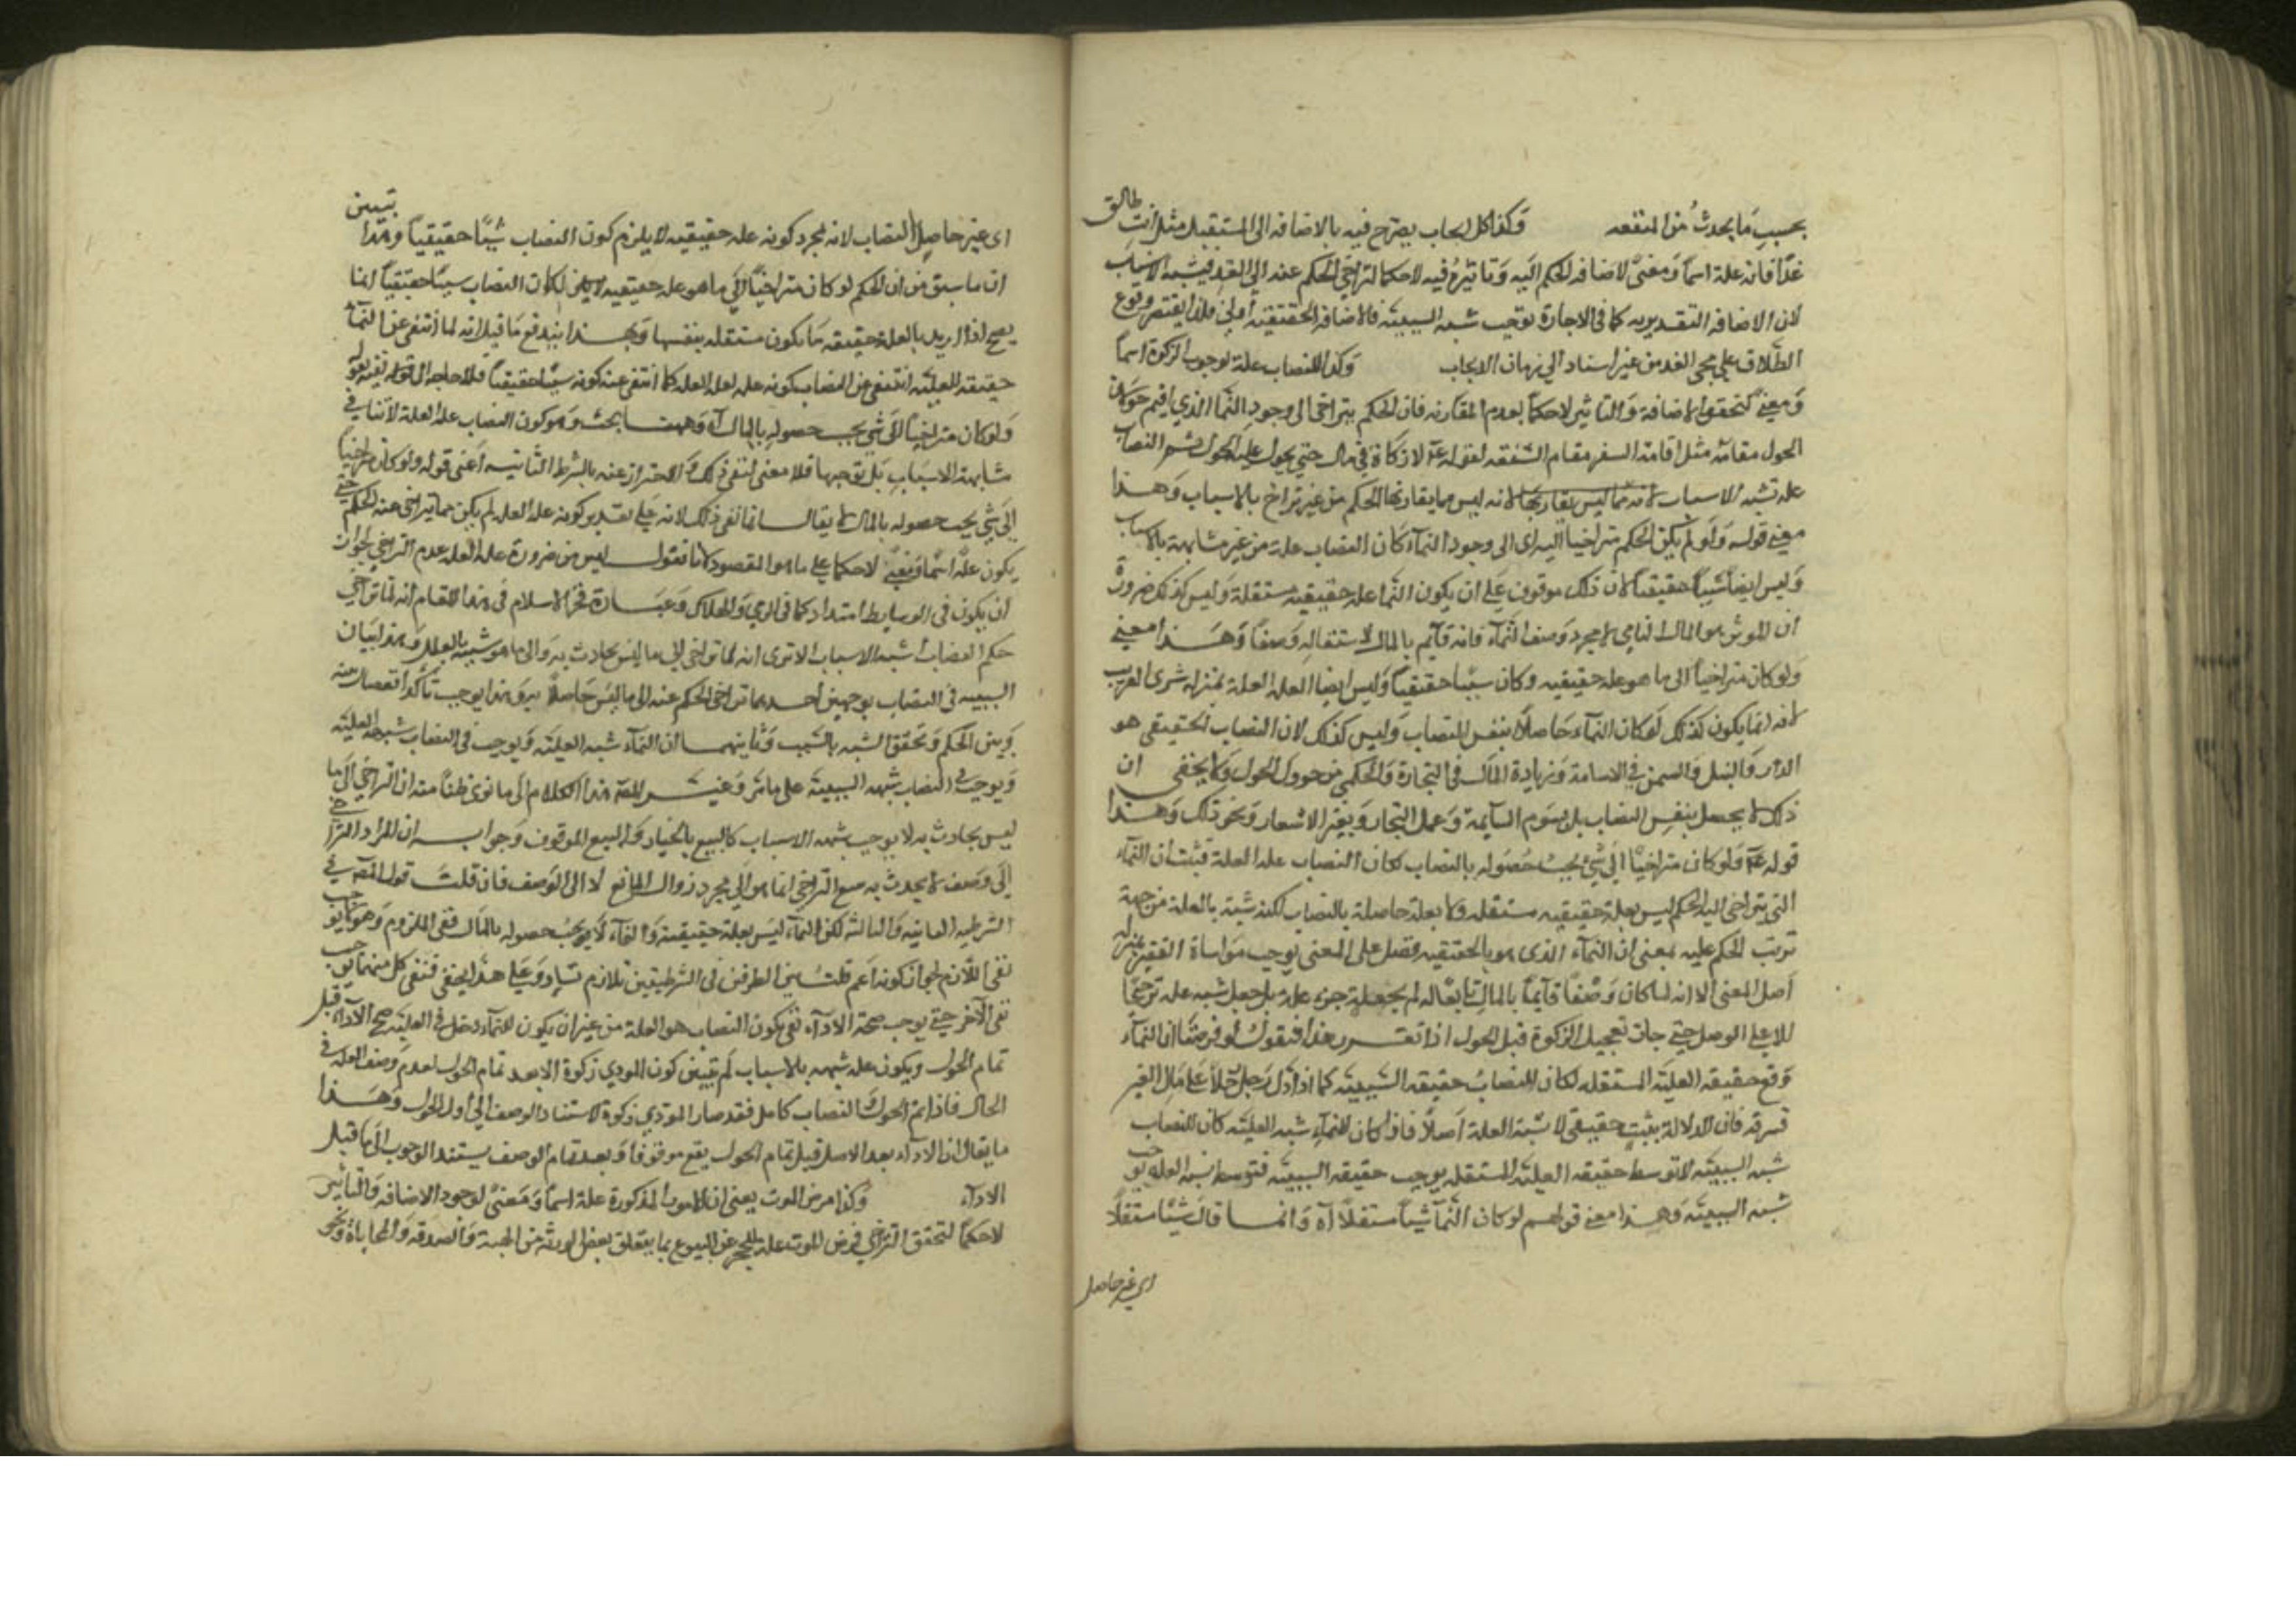 بحسب ما يحدث من المنفعه وكذا كل ايجاب يصرح فيه بالاضافه الى المستقبل مثل انت طالق
غدًا فانه علة اسمًا ومعنىً لاضافه الحكم اليه وتاثيره فيه لاحكما لتراخي الحكم عنه الى الغد فيشبه الاسباب
لان الاضافه التقديريه كما في الاجارة توجب شبه السببيه فالاضافه الحقيقيه اولى فلذا يقتصر وقوع
الطلاق على مجى الغد من غير اسناد الى زمان الايجاب وكذا النصاب علة لوجوب الزكوة اسماً
ومعنىً لتحقق الاضافة والتاثير لاحكماً لعدم المقارنه فان الحكم يتراخى الى وجود النما الذي اقيم حولان
الحول مقامه مثل اقامة السفر مقام المشقه لقوله عم لا زكاة في مال حتى يحول عليه الحول ثم النصاب
عله تشبه الاسباب لانه ليس مما يقارنها الحكم من غير تراخ بالاسباب وهذا
معنى قوله ولو لم يكن الحكم متراخياً اليه اى الى وجود النماء كان النصاب علة من غير مشابهة بالاسباب
وليس ايضاً سبباً حقيقياً لان ذلك موقوف على ان يكون النما عله حقيقيه مستقلة وليس كذلك ضرورة
ان الموثر هو المال النامى لا مجرد وصف النماء فانه قايم بالمال لا استقلال له وصفاً وهذا معنى
ولو كان متراخياً الى ما هو عله حقيقيه وكان سببًا حقيقياً وليس ايضا العله العلة بمنزله شرى القريب
لانه انما يكون كذلك لو كان النماء حاصلاً بنفس النصاب وليس كذلك لان النصاب الحقيقي هو
الدر والنسل والسمن في الاسامة وزيادة المال في التجارة والحكمى هو حول الحول ولا يخفى ان
ذلك لا يحصل بنفس النصاب بل بسوم السايمة وعمل التجار وبغير الاسعار ونحو ذلك وهذا
قوله عم ولو كان متراخياً الى شى يجب حصوله بالنصاب لكان النصاب علة العلة فثبت ان النماء
التى يتراخى اليه الحكم ليس بعلة حقيقيه مستقله ولا بعلة حاصلة بالنصاب لكنه شبه بالعلة من جهة
ترتب الحكم عليه بمعنى ان النماء الذى هو بالحقيقيه فضل على المعنى يوجب مواساة الفقير بمنزله
اصل المعنى الا انه لما كان وصفًا قايمًا بالمال تابعًا له لم يجعل جزء علة بل جعل شبه علة ترجيحًا
للاصل على الوصل حتى جاز تعجيل الزكوة قبل الحول اذا تقرر هذا فنقول لو فرضنا ان النماء
وقع حقيقه العلية المستقله لكان للنصاب حقيقه السببيه كما اذا دل رجل رجلًا على مال الغير
فسرقه فان الدلالة سبب حقيقي لا شبه العلة اصلاً فاذا كان للنماء شبه العليه كان للنصاب
شبه السببيه لان توسط حقيقه العليه المستقله يوجب حقيقه السببيه فتوسط شبه العله يوجب
شبه السببيه وهذا معنى قولهم لو كان النماء شياً مستقلاً اه وانما قال شيئًا مستقلًا
اى غير حاصل
اى غير حاصل النصاب لانه لمجرد كونه عله حقيقيه لا يلزم كون النصاب سببًا حقيقياً وبهذا تبين
ان ما سبق من ان الحكم لو كان متراخياً الى ما هو عله حقيقيه لكان النصاب سببًا حقيقياً انما
يصح اذا اريد بالعلة حقيقه ما يكون مستقله بنفسها وبهذا يندفع ما قيل انه لما انتفى عن النماء
حقيقه العليه انتفى عن النصاب كونه عله لعلة العله كما انتفى عنه كونه سببًا حقيقياً فلا حاجه الى قوله
ولو كان متراخياً الى شى يجب حصوله بالمال اه وههنا بحث وهو كون النصاب علة العلة لا ينافي
مشابهة الاسباب بل توجبها فلا معنى لنفى ذلك والاحتراز عنه بالشرط الثانيه اعنى قوله ولو كان متراخياً
الى شى يجب حصوله بالمال لا يقال انما نفى ذلك لانه على تقدير كونه علة العله لم يكن مما يتراخى عنه الحكم حتى
يكون علة اسمًا ومعنىً لاحكما على ما هو المقصود لانا نقول ليس من ضرورة علة العله عدم التراخى لجواز
ان يكون فى الوسايط امتداد كما فى الرمي والهلاك وعبارة فخر الاسلام فى هذا المقام انه لما تراخى
حكم النصاب اشبه الاسباب الا ترى انه لما تراخى الى ما ليس بحادث به والى ما هو شبيه بالعلل وهذا بيان
السببيه فى النصاب بوجهين احدهما تراخى الحكم عنه الى ما ليس حاصلاً به وهذا يوجب تأكد انفصال بينه
وبين الحكم وتحقق الشبه بالسبب وثانيهما ان النماء شبه العليه ويوجب فى النصاب شبهة العليه
ويوجب فى النصاب شبهه السببيه على ما مر وغيّر المصـ هذا الكلام الى ما نوى ظنًا منه ان التراخى الى ما
ليس بحادث به لا يوجب شبهه الاسباب كالبيع بالخيار والبيع الموقوف وجوابه ان المراد التراخى
الى وصف لا يحدث به مع التراخى انما هو الى مجرد زوال المانع لا الى الوصف فان قلت قول المصـ فى
الشرطيه الثانيه والثالثه لكن النماء ليس بعلة حقيقيه والنماء لا يجب حصوله بالمال نفى الملزوم وهو لا يوجب
نفى اللازم لجواز كونه اعم قلت بين الطرفين فى الشرطيتين تلازم تساو وعلى هذا لا يخفى فنفى كل منهما يوجب
نفى الآخر حتى يوجب صحة الاداء نفى كون النصاب هو العلة من غير ان يكون للنماء دخل فى العليه صح الاداء قبل
تمام الحول ويكون عله شبيهه بالاسباب لم يتبين كون المودي زكوة الا بعد تمام الحول لعدم وصف العله فى
الحال فاذا تم الحول والنصاب كامل فقد صار المودي زكوة لاستناد الوصف الى اول الحول وهذا
ما يقال ان الاداء بعد الاصل قبل تمام الحول يقع موقوفا وبعد تمام الوصف يستند الوجوب الى ما قبل
الاداء وكذا مرض الموت يعنى ان الامور المذكورة علة اسمًا ومعنىً لوجود الاضافه والتأثير
لاحكمًا لتحقق التراخي فمرض الموت علة للحجر عن التبرع بما يتعلق بحق الورثه من الهبة والصدقه والمحاباة ونحو